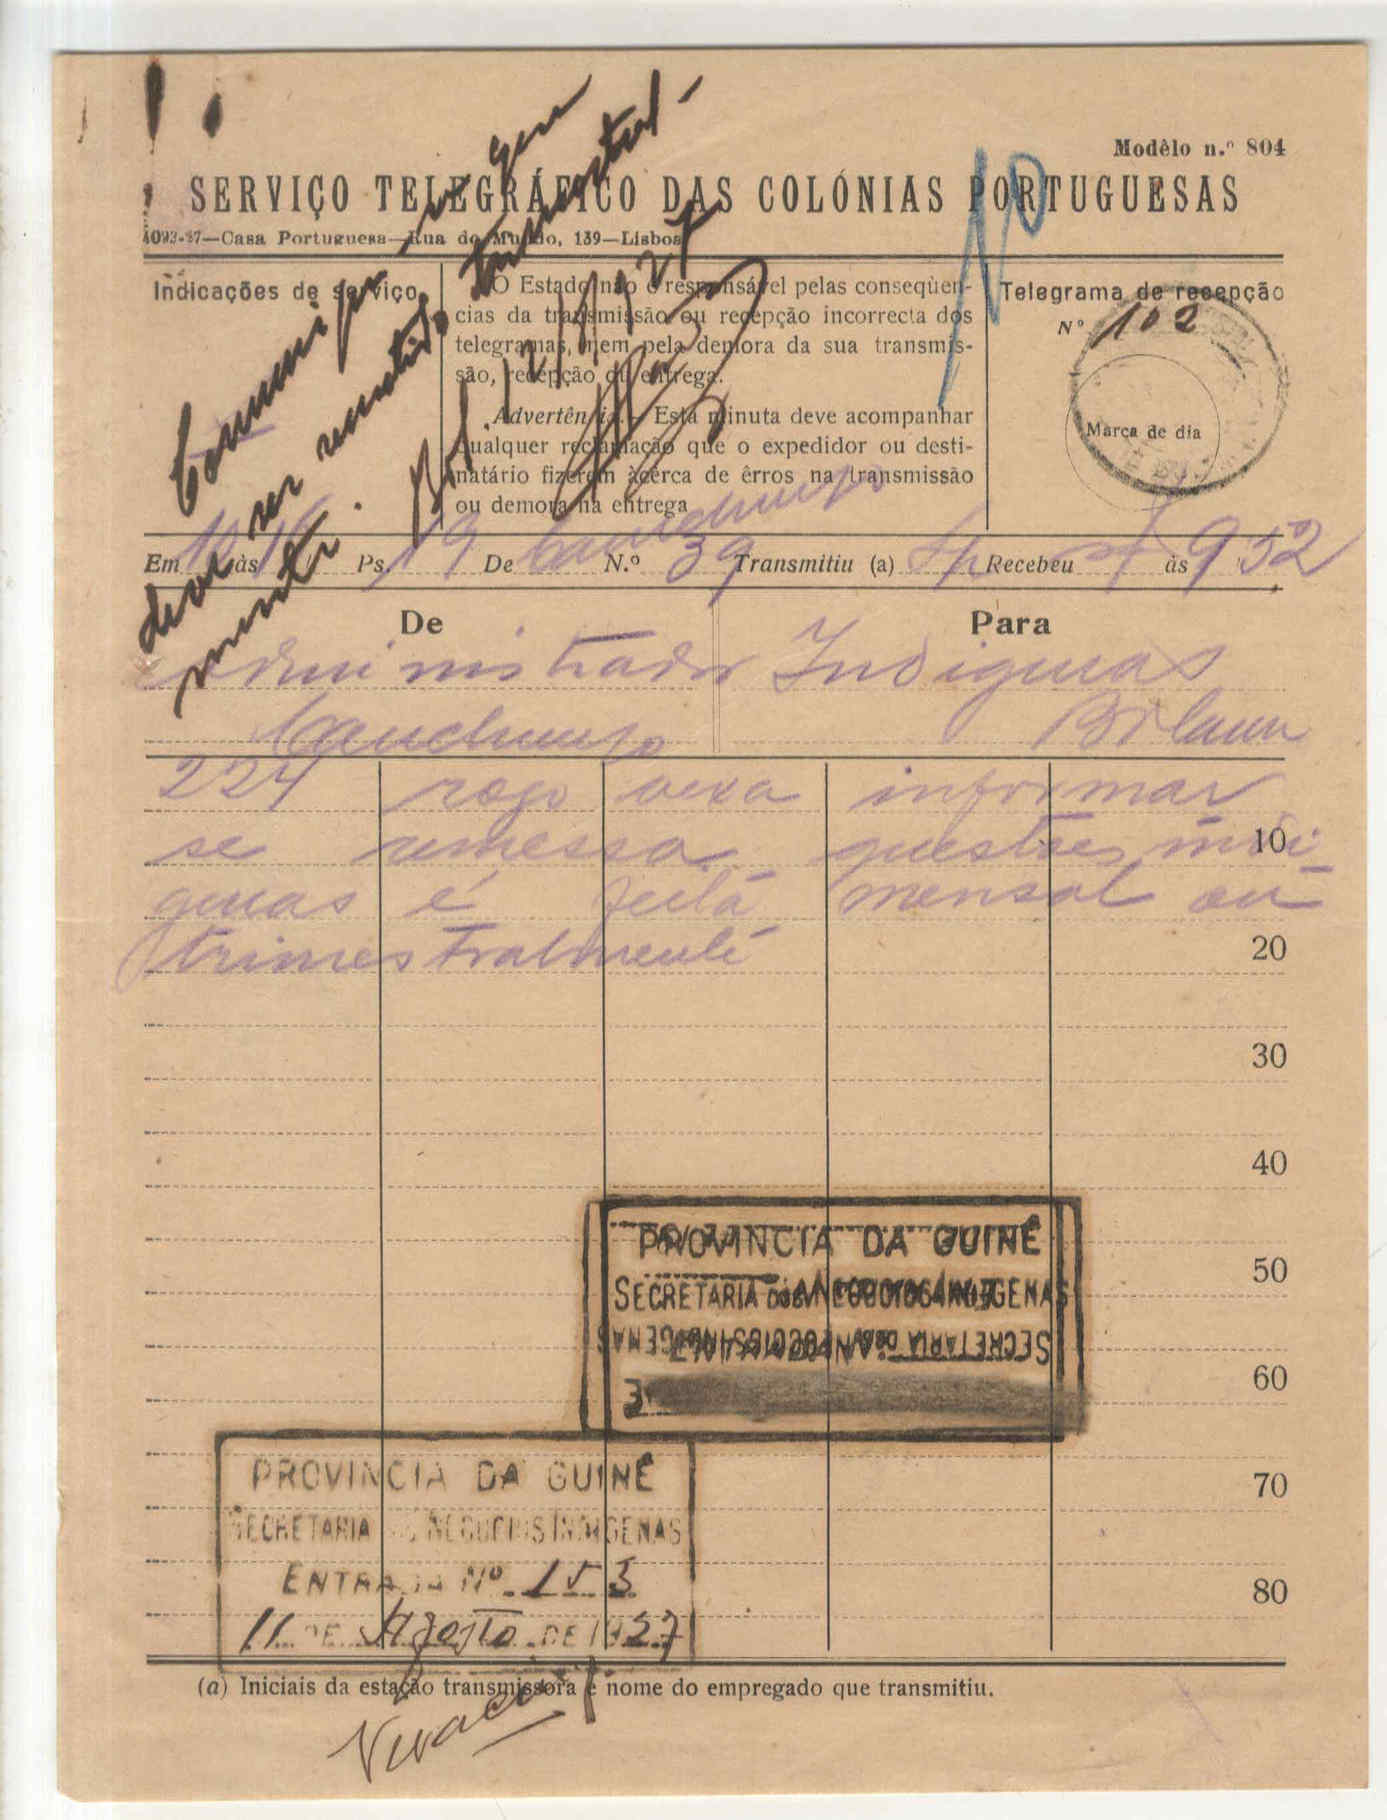 Modêlo n.º 804
SERVIÇO TELEGRÁFICO DAS COLÓNIAS PORTUGUESAS
4093-27—Casa Portuguesa—Rua do Mundo, 139—Lisboa
Communique-se que
deve ser remetido trimestral-
mente.
12/8/927
Indicações de serviço
O Estado não é responsável pelas conseqùen-
cias da transmissão ou recepção incorrecta dos
telegramas, nem pela demora da sua transmis-
são, recepção ou entrega.
Advertência.—Esta minuta deve acompanhar
qualquer reclamação que o expedidor ou desti-
natário fizerem àcêrca de êrros na transmissão
ou demora na entrega
Telegrama de recepção
N° 102
Marca de dia
Em às Ps. 19 De Canchungo N.º 39 Transmitiu (a) Recebeu às 952
De
Para
Administrador
Indigenas
Canchungo
Bolama
224 rogo vexa informar
se remessa questões indi-
genas é feita mensal ou
trimestralmente
10
20
30
40
50
60
70
80
PROVINCIA DA GUINÉ
SECRETARIA DOS NEGOCIOS INDIGENAS
PROVINCIA DA GUINÉ
SECRETARIA DOS NEGOCIOS INDIGENAS
ENTRADA Nº 153
11 DE Agosto DE 1927
(a) Iniciais da estação transmissora e nome do empregado que transmitiu.